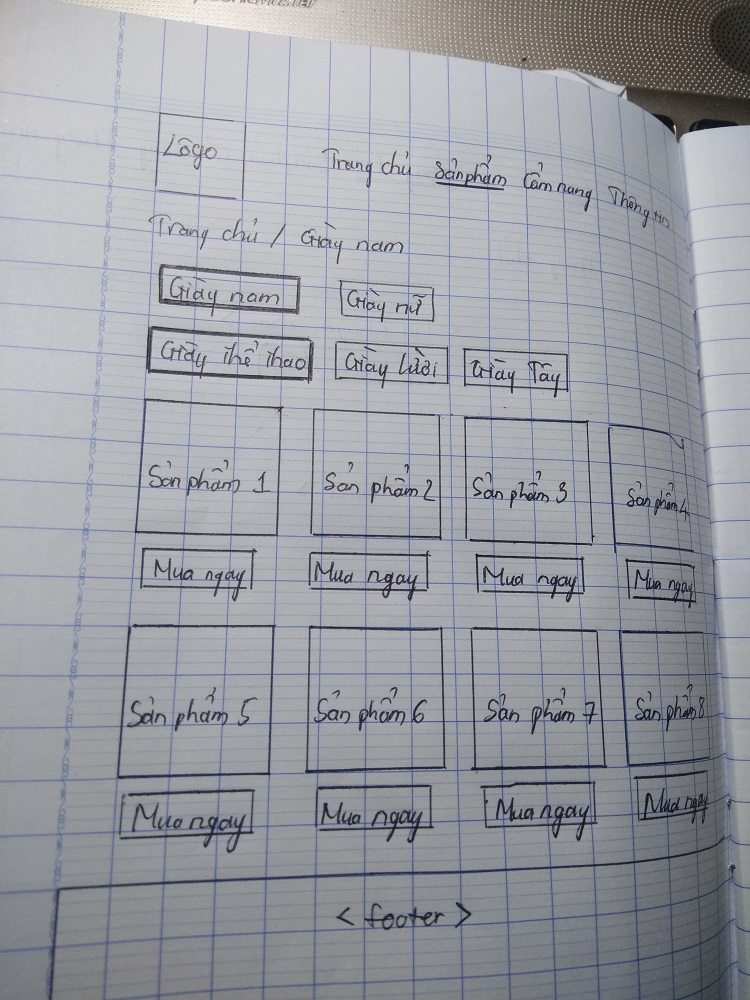 Lôgo
Trang chủ Sản phẩm Cẩm nang Thông tin
Trang chủ / Giày nam
Giày nam Giày nữ
Giày thể thao Giày lười Giày Tây
Sản phẩm 1 Sản phẩm 2 Sản phẩm 3 Sản phẩm 4
Mua ngay Mua ngay Mua ngay Mua ngay
Sản phẩm 5 Sản phẩm 6 Sản phẩm 7 Sản phẩm 8
Mua ngay Mua ngay Mua ngay Mua ngay
< footer >